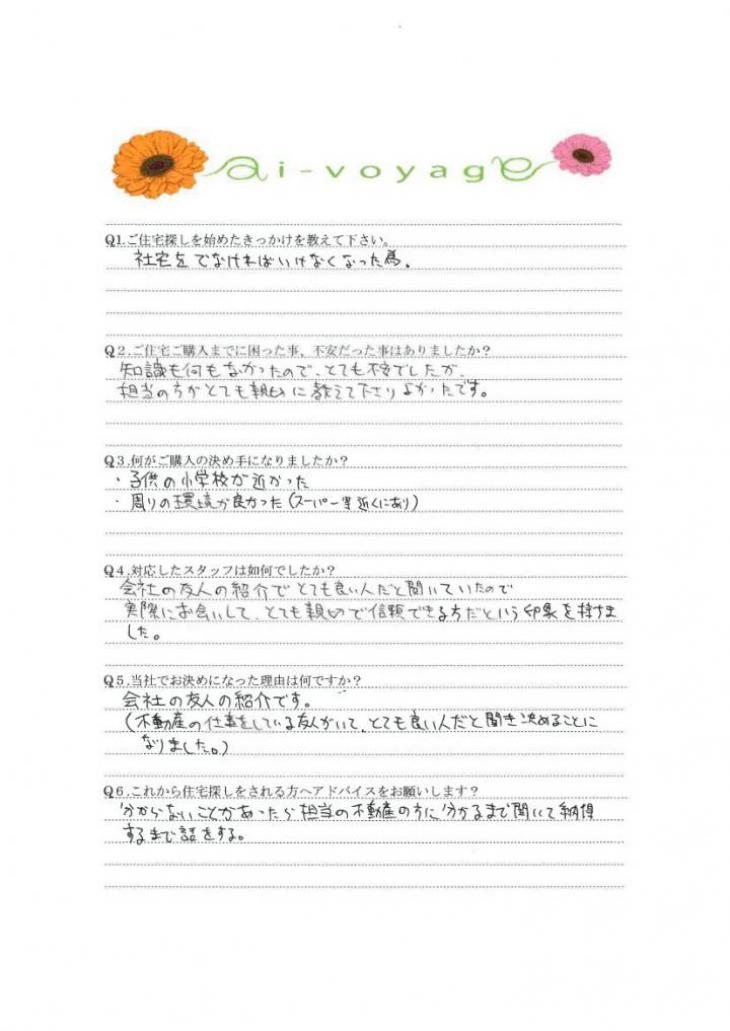 ai-voyage
Q1.ご住宅探しを始めたきっかけを教えて下さい。
社宅をでなければいけなくなった為。
Q2.ご住宅ご購入までに困った事、不安だった事はありましたか？
知識も何もなかったので、とても不安でしたが、
担当の方がとても親切に教えて下さりよかったです。
Q3.何がご購入の決め手になりましたか？
・子供の小学校が近かった
・周りの環境が良かった(スーパー等近くにあり)
Q4.対応したスタッフは如何でしたか？
会社の友人の紹介でとても良い人だと聞いていたので
実際にお会いして、とても親切で信頼できる方だという印象を持てま
した。
Q5.当社でお決めになった理由は何ですか？
会社の友人の紹介です。
(不動産の仕事をしている友人がいて、とても良い人だと聞き決めることに
なりました。)
Q6.これから住宅探しをされる方へアドバイスをお願いします？
分からないことがあったら担当の不動産の方に分かるまで聞いて納得
するまで話をする。